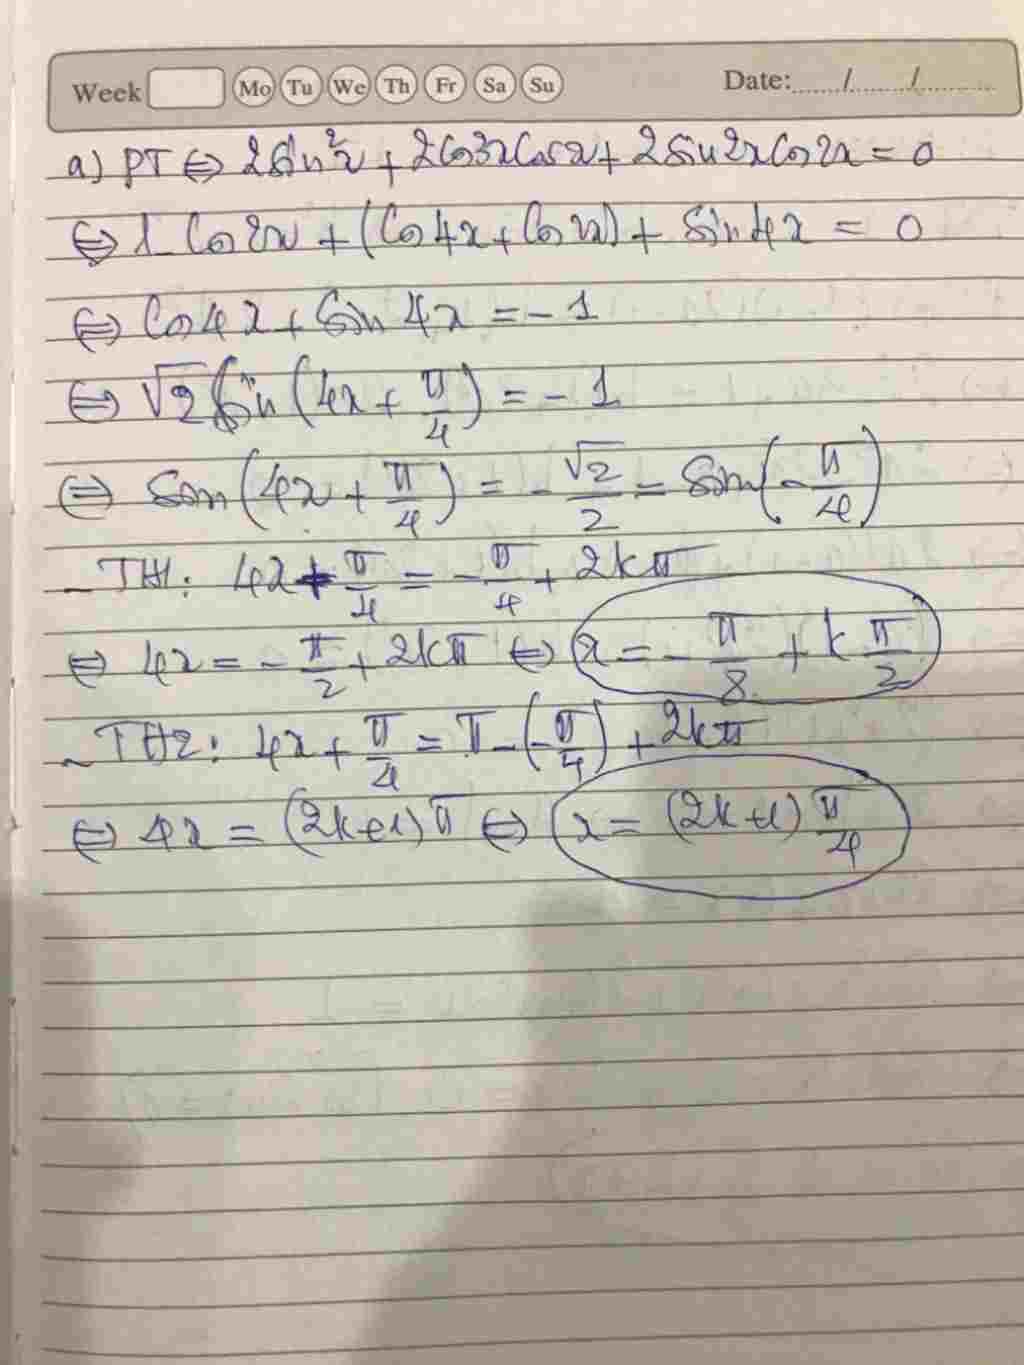 Week Mo Tu We Th Fr Sa Su Date: ...../...../.....
a) PT ⇔ 2sin²x + 2cos3xcosx + 2sin2xcos2x = 0
⇔ 1 - cos2x + (cos4x + cos2x) + sin4x = 0
⇔ cos4x + sin4x = -1
⇔ √2 sin(4x + π/4) = -1
⇔ sin(4x + π/4) = -√2/2 = sin(-π/4)
- TH1: 4x + π/4 = -π/4 + 2kπ
⇔ 4x = -π/2 + 2kπ ⇔ x = -π/8 + kπ/2
- TH2: 4x + π/4 = π - (-π/4) + 2kπ
⇔ 4x = (2k+1)π ⇔ x = (2k+1)π/4